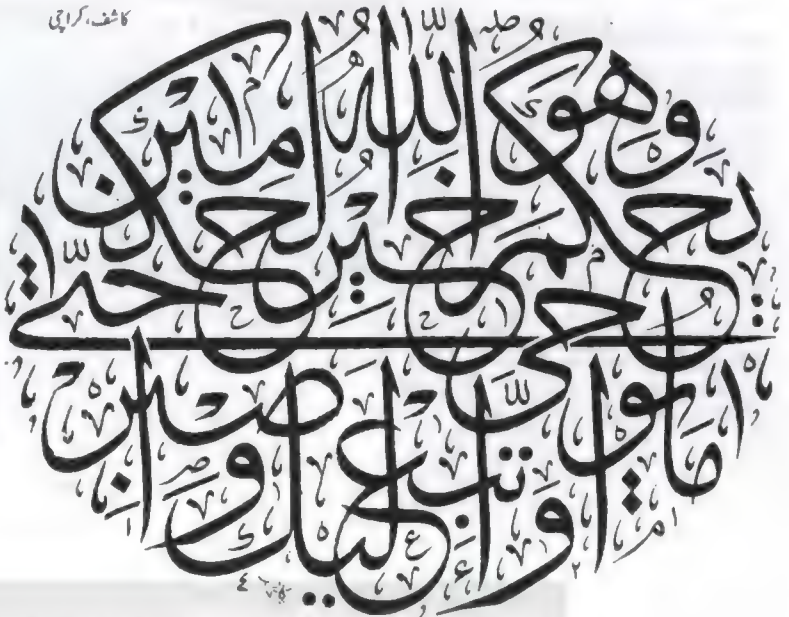 کاشف، کراچی
وَاتَّبِعْ مَا يُوحَىٰ إِلَيْكَ وَاصْبِرْ
حَتَّىٰ يَحْكُمَ اللَّهُ وَهُوَ خَيْرُ الْحَٰكِمِينَ